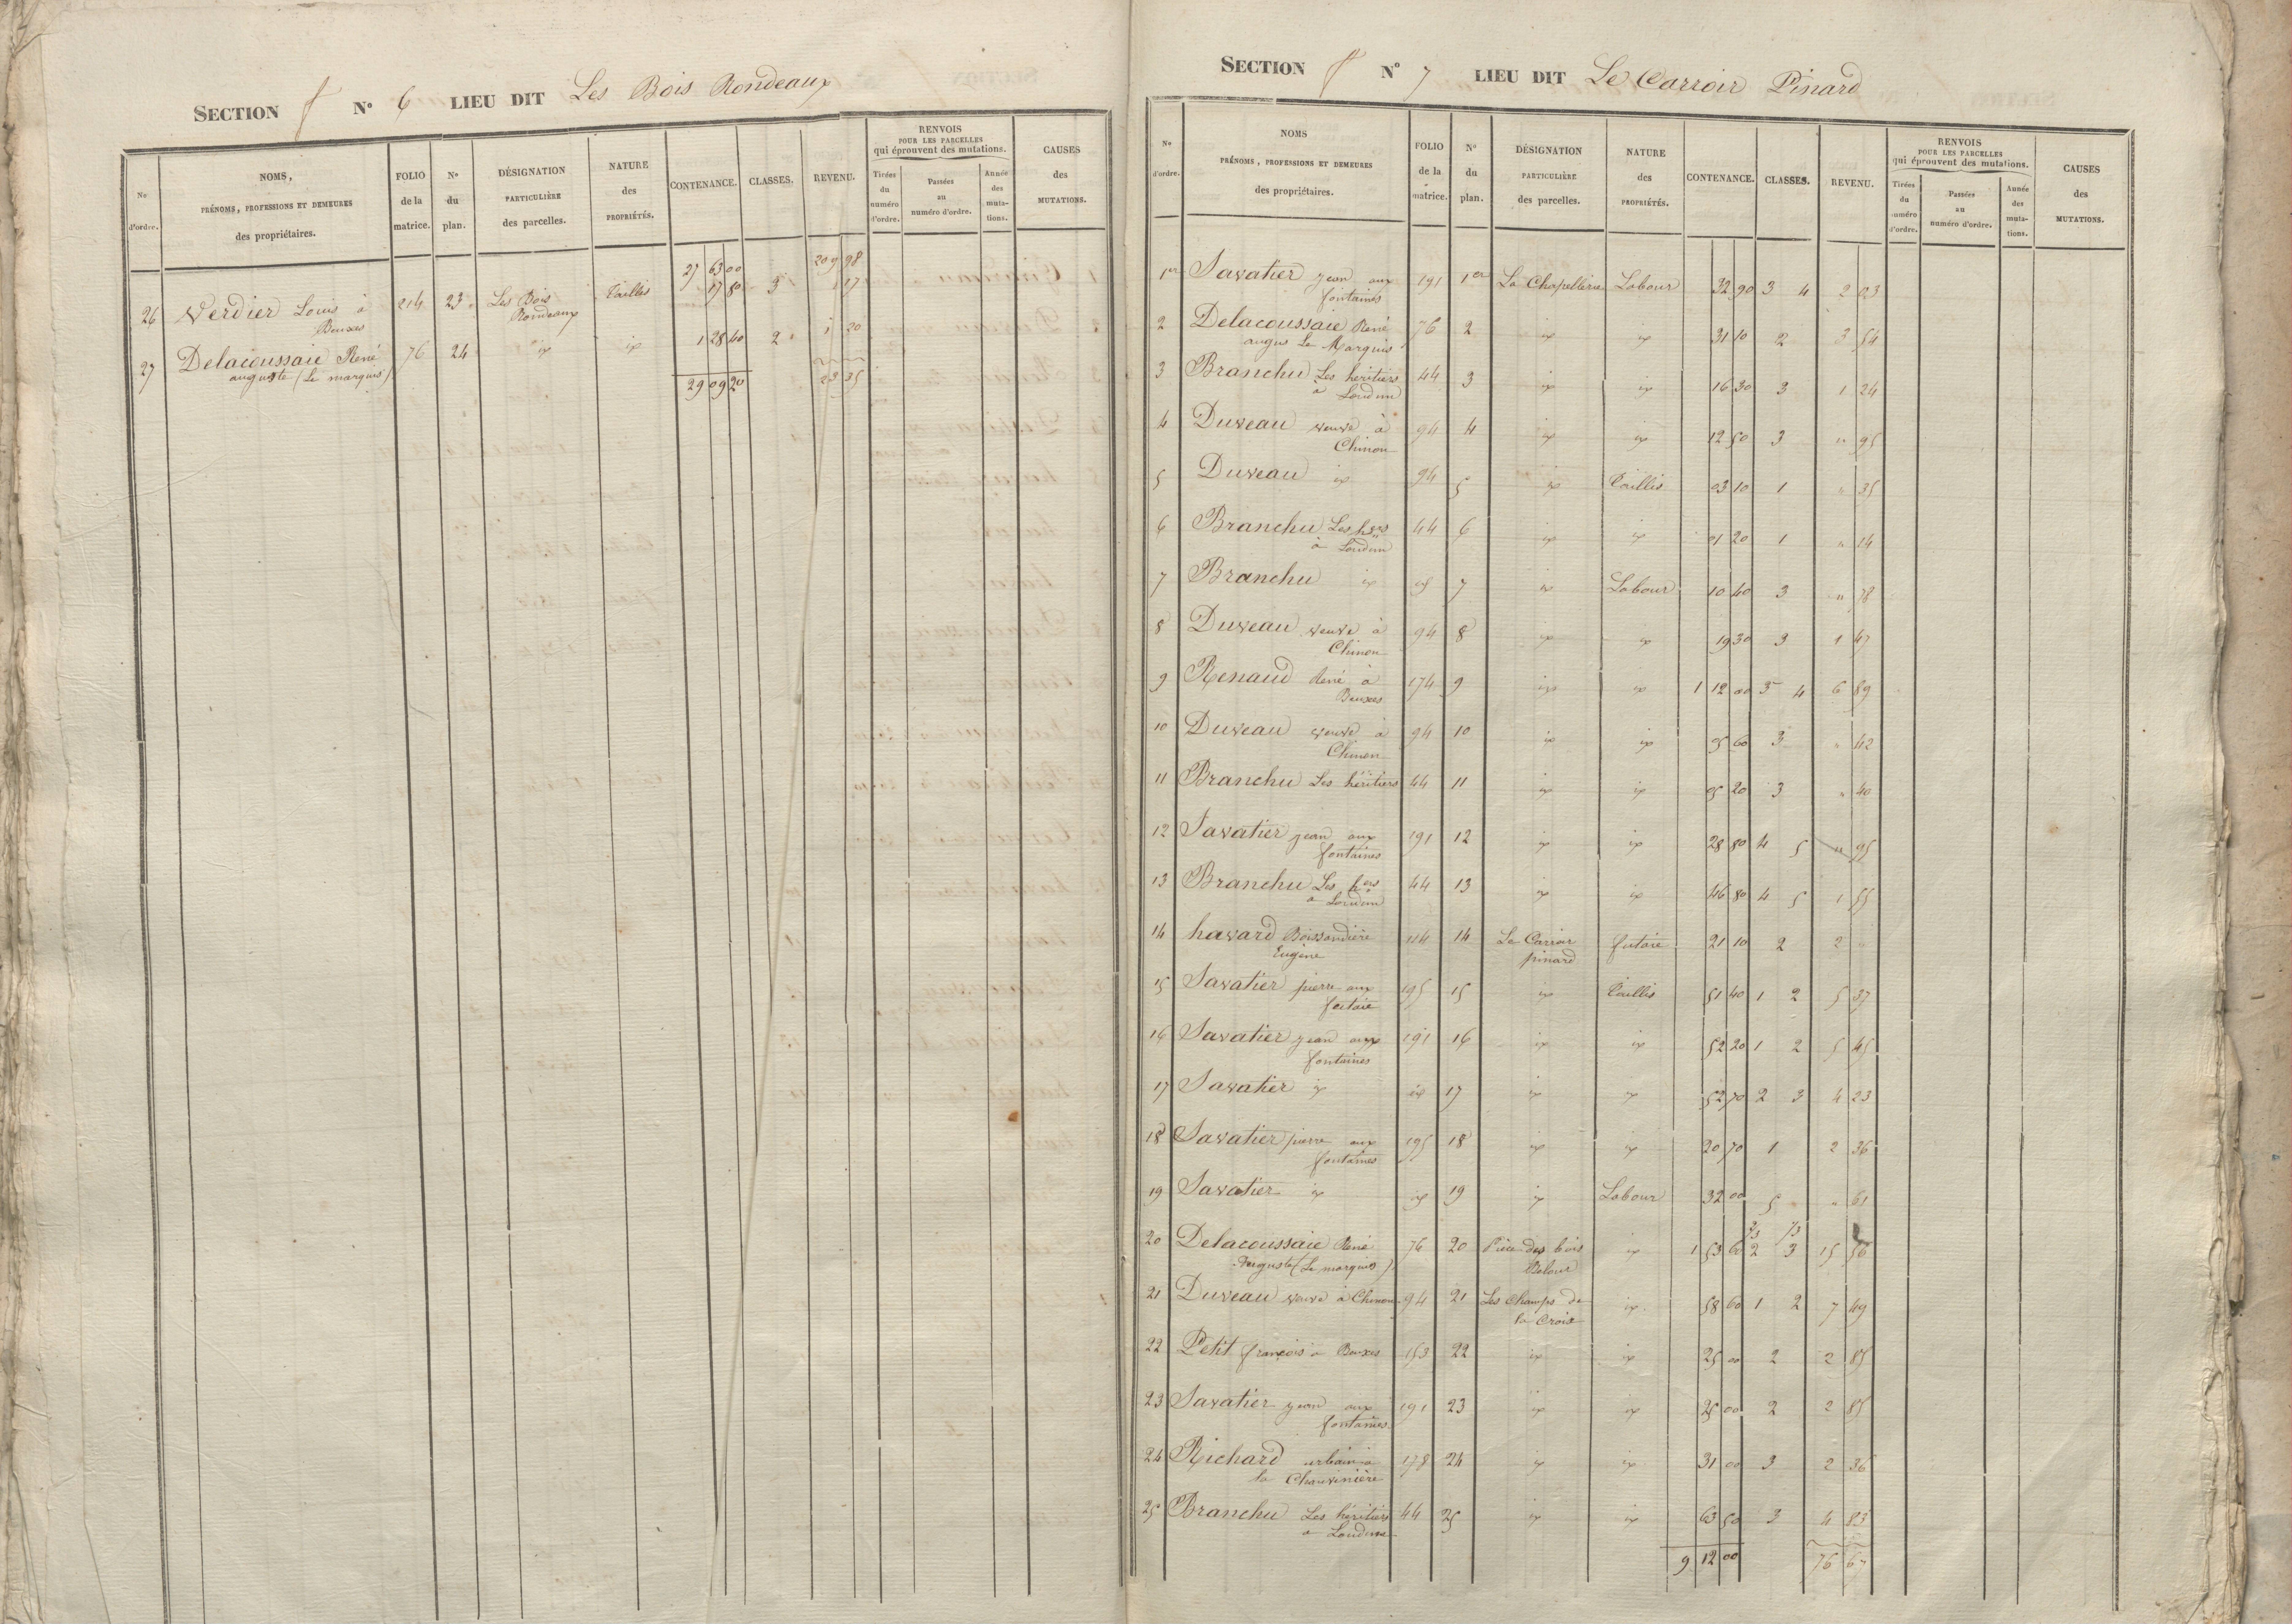 SECTION f N° 6 LIEU DIT Les Bois Rondeaux
Nos d'ordre. NOMS, PRÉNOMS, PROFESSIONS ET DEMEURES des propriétaires. FOLIO de la matrice. N° du plan. DÉSIGNATION PARTICULIÈRE des parcelles. NATURE des PROPRIÉTÉS. CONTENANCE. CLASSES. REVENU. RENVOIS POUR LES PARCELLES qui éprouvent des mutations. Tirées du numéro d'ordre. Passées au numéro d'ordre. Année des mutations. CAUSES des MUTATIONS.
27 63 00 209 98
26 Verdier Louis à Beuxes 214 23 Les Bois Rondeaux Taillis 17 80 3 17
27 Delacoussaie René auguste (Le marquis) 76 24 ip ip 1 28 40 2 1 20
29 09 20
SECTION f N° 7 LIEU DIT Le Carroir Pinard
Nos d'ordre. NOMS PRÉNOMS, PROFESSIONS ET DEMEURES des propriétaires. FOLIO de la matrice. N° du plan. DÉSIGNATION PARTICULIÈRE des parcelles. NATURE des PROPRIÉTÉS. CONTENANCE. CLASSES. REVENU. RENVOIS POUR LES PARCELLES qui éprouvent des mutations. Tirées du numéro d'ordre. Passées au numéro d'ordre. Année des mutations. CAUSES des MUTATIONS.
1er Savatier jean aux fontaines 191 1er La Chapellerie Labour 32 90 3 4 2 03
2 Delacoussaie René augus Le Marquis 76 2 ip ip 31 10 2 3 54
3 Branchu Les héritiers à Loudun 44 3 ip ip 16 30 3 1 24
4 Duveau veuve à Chinon 94 4 ip ip 12 50 3 " 95
5 Duveau ip 94 5 ip Taillis 03 10 1 " 35
6 Branchu Les hers à Loudun 44 6 ip ip 01 20 1 " 14
7 Branchu ip ip 7 ip Labour 10 40 3 " 78
8 Duveau veuve à Chinon 94 8 ip ip 19 30 3 1 47
9 Renaud René à Beuxes 174 9 ip ip 1 12 00 3 4 6 89
10 Duveau veuve à Chinon 94 10 ip ip 05 60 3 " 42
11 Branchu Les héritiers 44 11 ip ip 05 20 3 " 40
12 Savatier jean aux fontaines 191 12 ip ip 28 80 4 5 " 95
13 Branchu Les hers a Loudun 44 13 ip ip 46 80 4 5 1 55
14 havard Boissandière Eugène 114 14 Le Carroir pinard futaie 21 10 2 2 "
15 Savatier pierre aux 195 15 ip Taillis 51 40 1 2 5 37
16 Savatier jean aux fontaines 191 16 ip ip 52 20 1 2 5 45
17 Savatier ip ip 17 ip ip 52 70 2 3 4 23
18 Savatier pierre aux fontaines 195 18 ip ip 20 70 1 2 36
19 Savatier ip ip 19 ip Labour 32 00 5 " 61
2/3 1/3
20 Delacoussaie René Auguste (Le marquis) 76 20 Pièce des bois ip 1 53 60 2 3 15 56
21 Duveau veuve à Chinon 94 21 Les Champs de la Croix ip 58 60 1 2 7 49
22 Petit françois a Beuxes 153 22 ip ip 25 00 2 2 85
23 Savatier jean aux fontaines 191 23 ip ip 25 00 2 2 85
24 Richard urbain a la Chauvinière 178 24 ip ip 31 00 3 2 36
25 Branchu Les héritiers a Loudun 44 25 ip ip 63 50 3 4 83
9 12 00 76 67